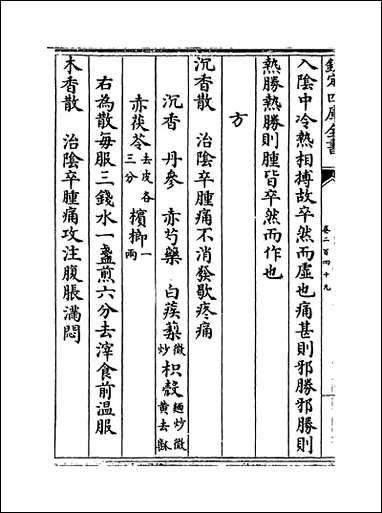 欽定四庫全書
卷二百四十九
入陰中冷熱相搏故卒然而虛也痛甚則邪勝邪勝則
熱勝熱勝則腫皆卒然而作也
方
沉香散 治陰卒腫痛不消發歇疼痛
沉香 丹參 赤芍藥 白蒺藜微炒 枳殼麵炒微黃去穰
赤茯苓去皮各三分 檳榔一兩
右為散每服三錢水一盞煎六分去滓食前温服
木香散 治陰卒腫痛攻注腹脹滿悶